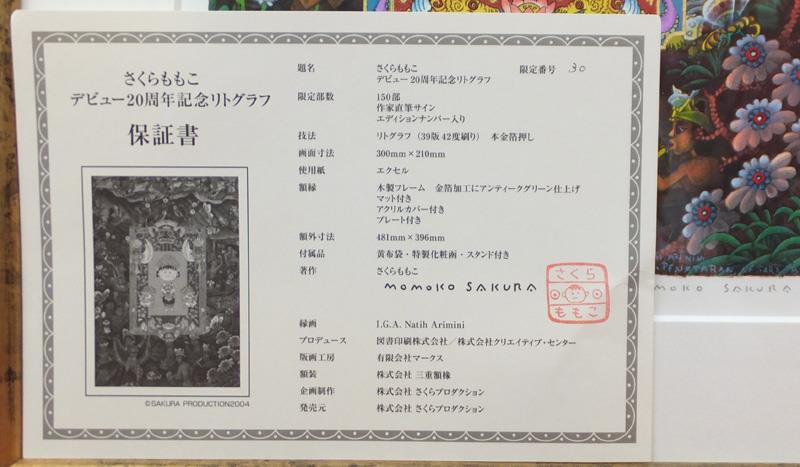 さくらももこ
デビュー20周年記念リトグラフ
保証書
©SAKURA PRODUCTION2004
題名 さくらももこ 限定番号 30
デビュー20周年記念リトグラフ
限定部数 150部
作家直筆サイン
エディションナンバー入り
技法 リトグラフ（39版42度刷り） 本金箔押し
画面寸法 300mm×210mm
使用紙 エクセル
額縁 木製フレーム 金箔加工にアンティークグリーン仕上げ
マット付き
アクリルカバー付き
プレート付き
額外寸法 481mm×396mm
付属品 黄布袋・特製化粧函・スタンド付き
著作 さくらももこ
MOMOKO SAKURA
さくら
ももこ
縁画 I.G.A. Natih Arimini
プロデュース 図書印刷株式会社／株式会社クリエイティブ・センター
版画工房 有限会社マークス
額装 株式会社 三重額椽
企画制作 株式会社 さくらプロダクション
発売元 株式会社 さくらプロダクション
MOKO SAKURA